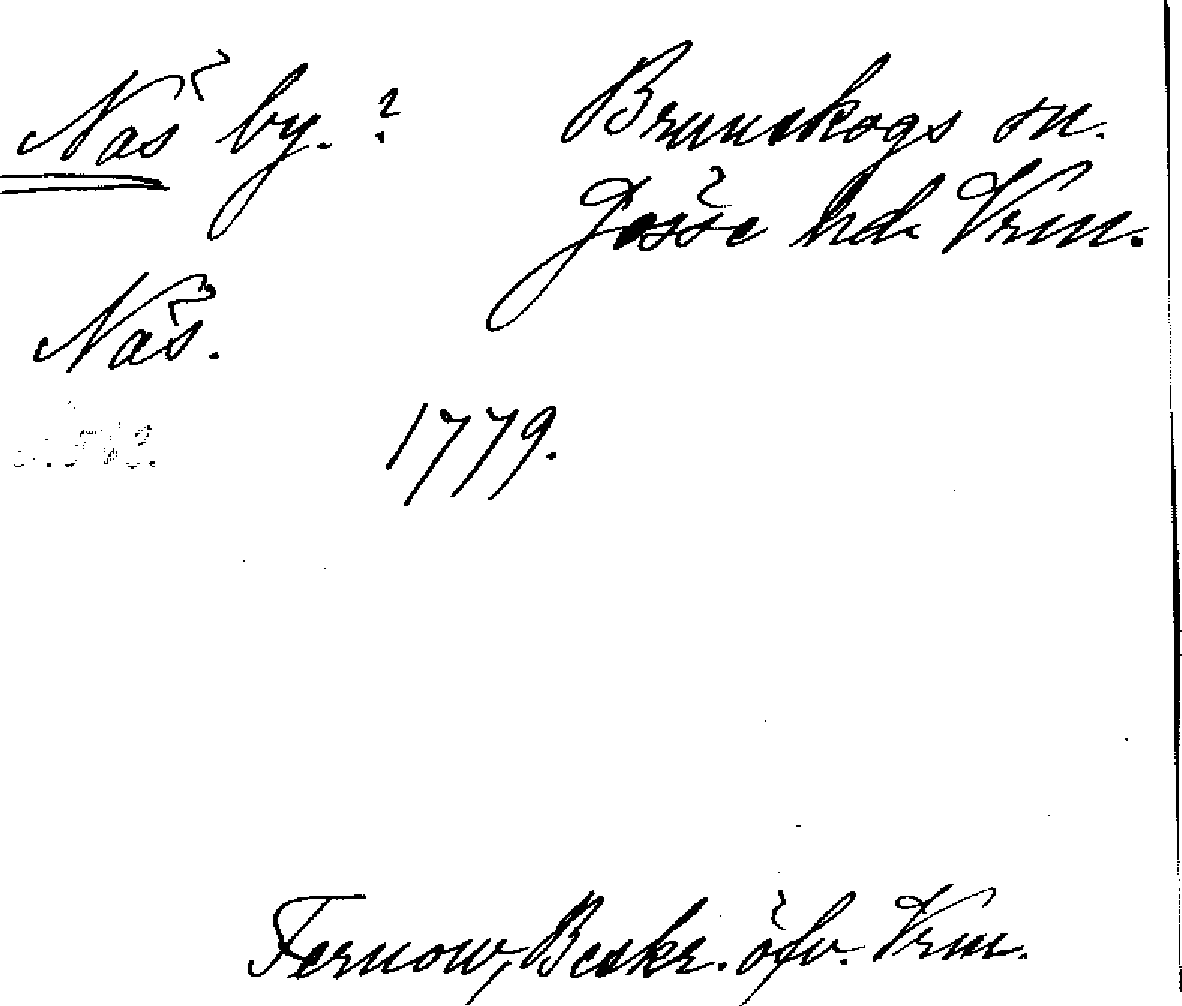 Näs by. ?
Brunskogs sn.
Jösse hd. Vrm.
Näs.
1779.
Fernow, Beskr. öfv. Vrm.